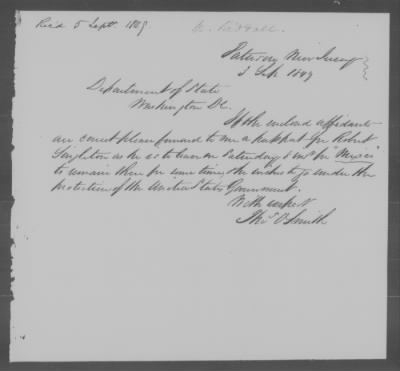 Recd 5 Septr 1849.
Paterson New Jersey
3 Sep. 1849
Department of State
Washington DC.
If the enclosd affidavits
are correct please forward to me a passport for Robert
Singleton as he is to leave on Saturday 8 inst for "Mexico"
to remain there for some time, he wishes to go under the
protection of the United States Government.
With respect
Thos D Smith